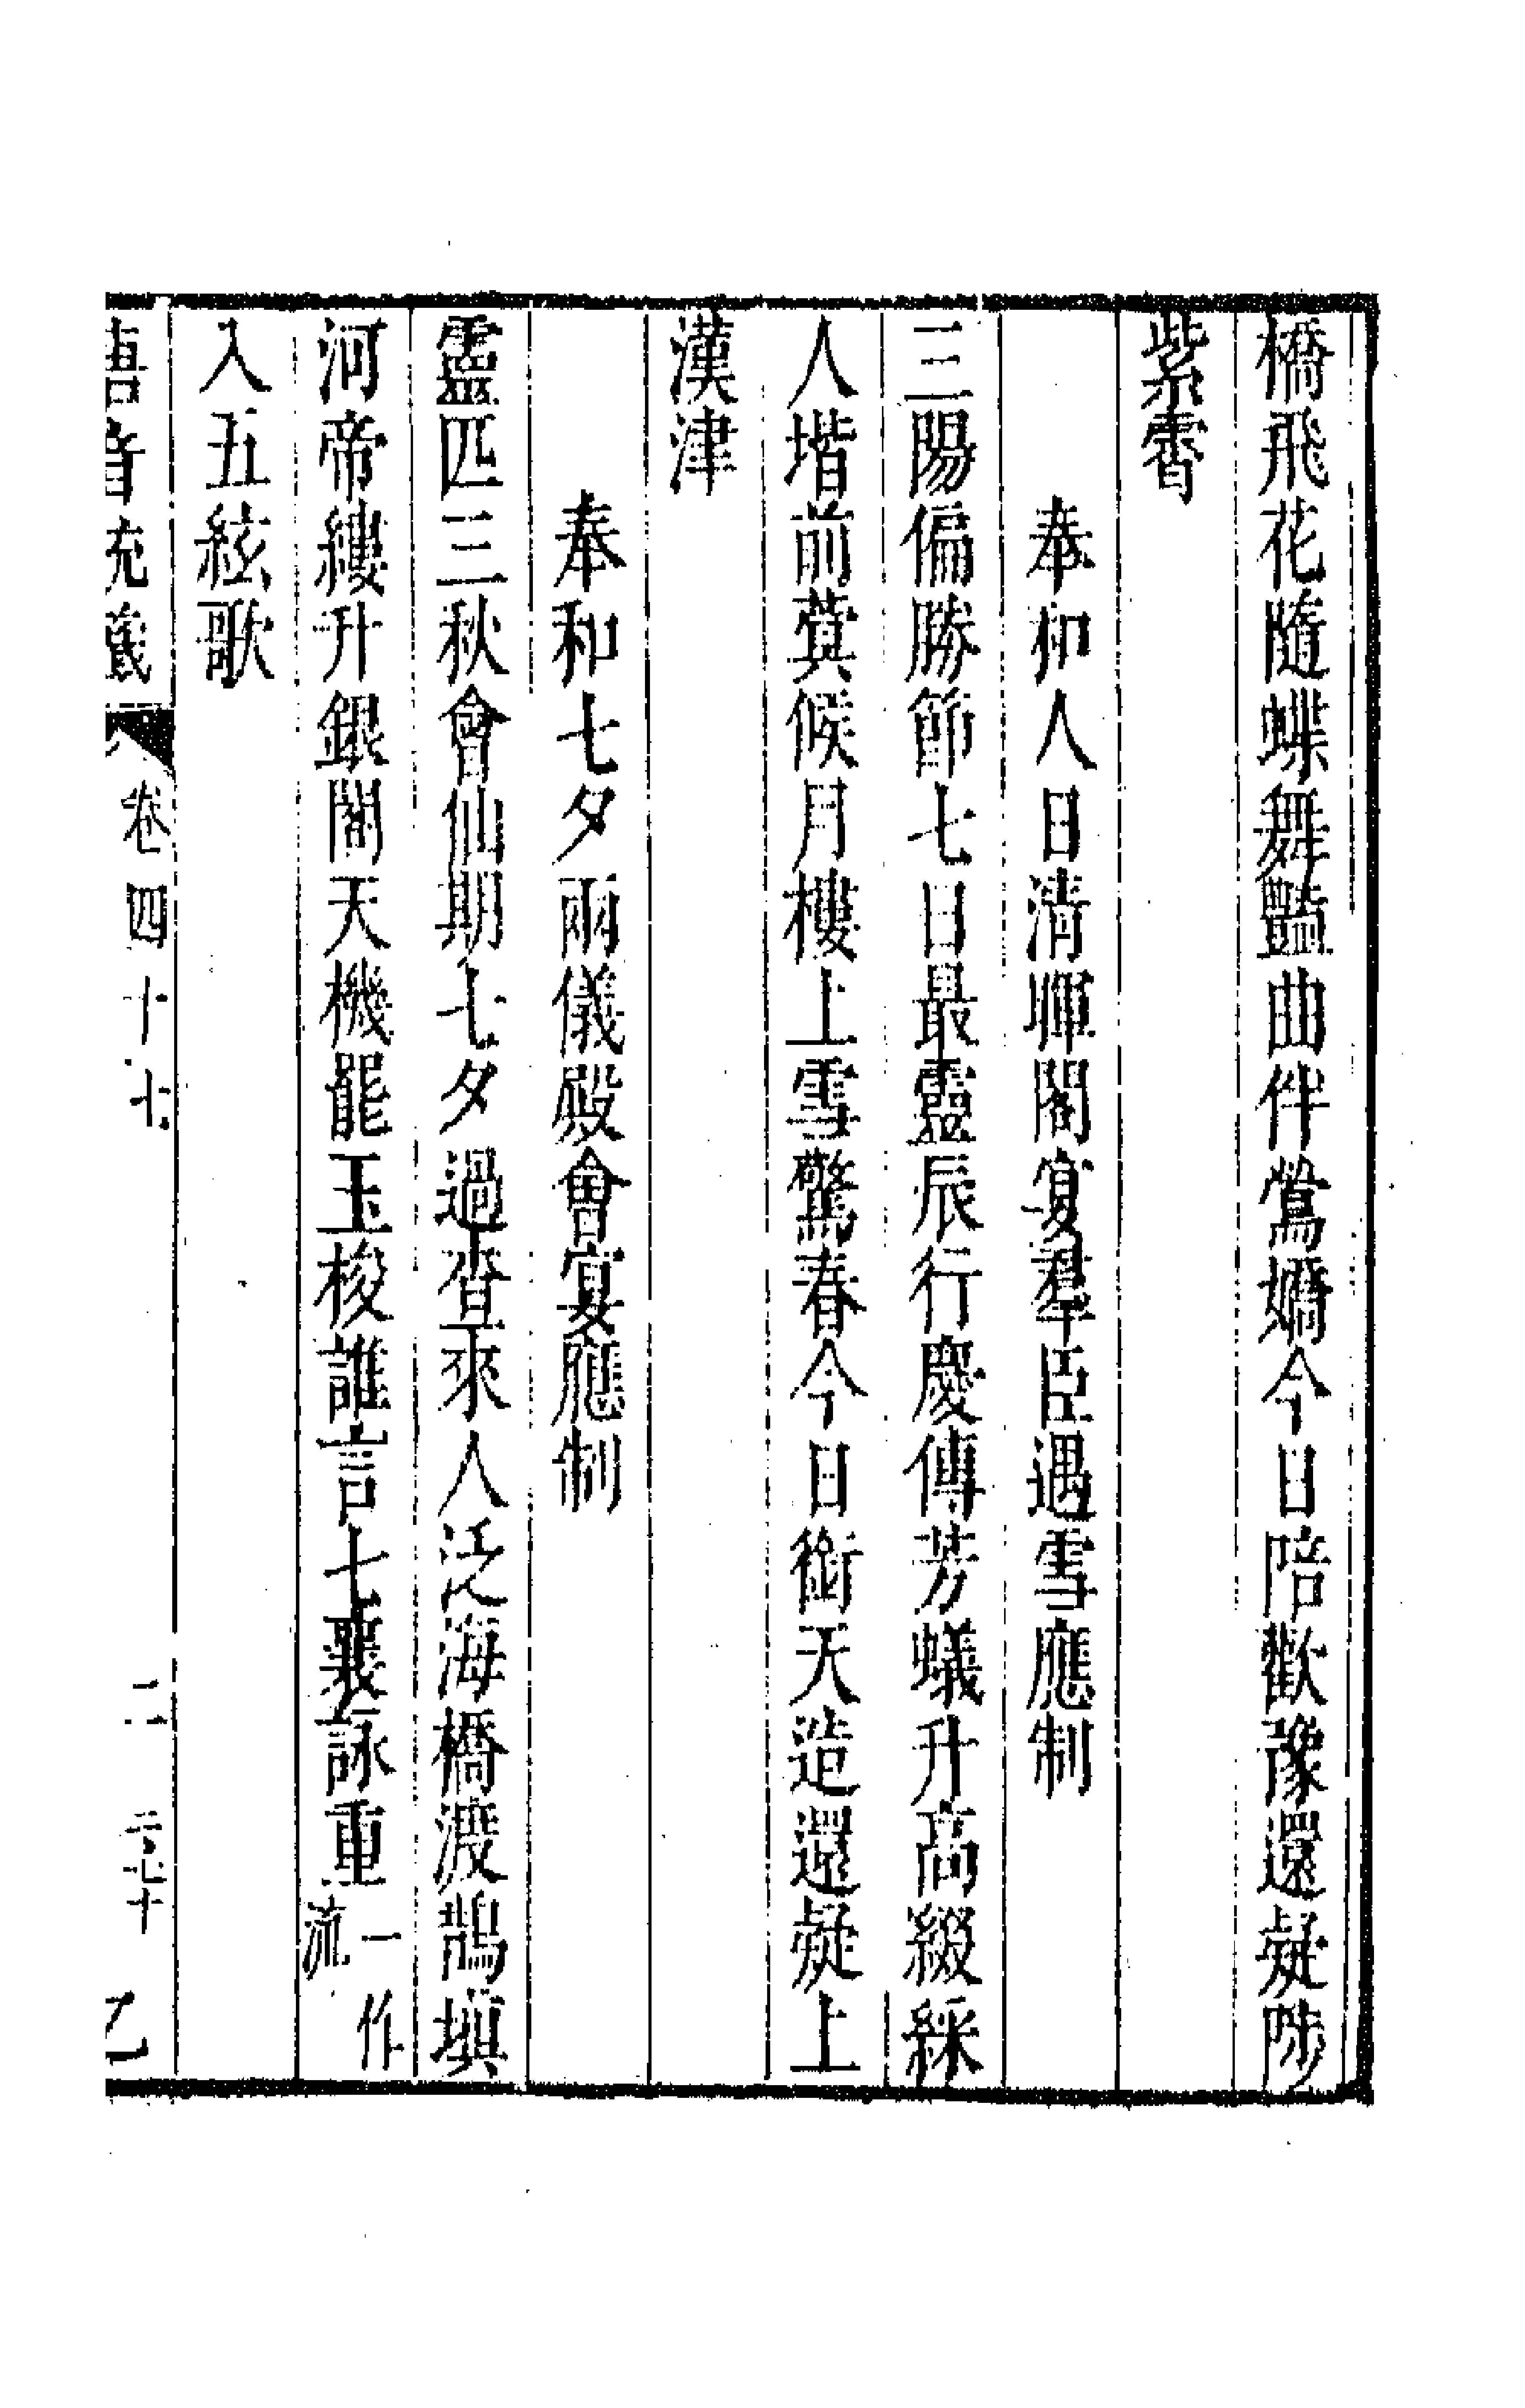 橋飛花隨蝶舞豔曲伴鶯嬌今日陪歡豫還疑陟
紫霄
奉和人日清暉閣宴羣臣遇雪應制
三陽偏勝節七日最靈辰行慶傳芳蟻升高綴綵
人堦前蓂候月樓上雪驚春今日銜天造還疑上
漢津
奉和七夕兩儀殿會宴應制
靈匹三秋會仙期七夕過查來人泛海橋渡鵲填
河帝縷升銀閣天機罷玉梭誰言七襄詠重一作流
入五絃歌
唐音統籤 卷四十七 二 乙